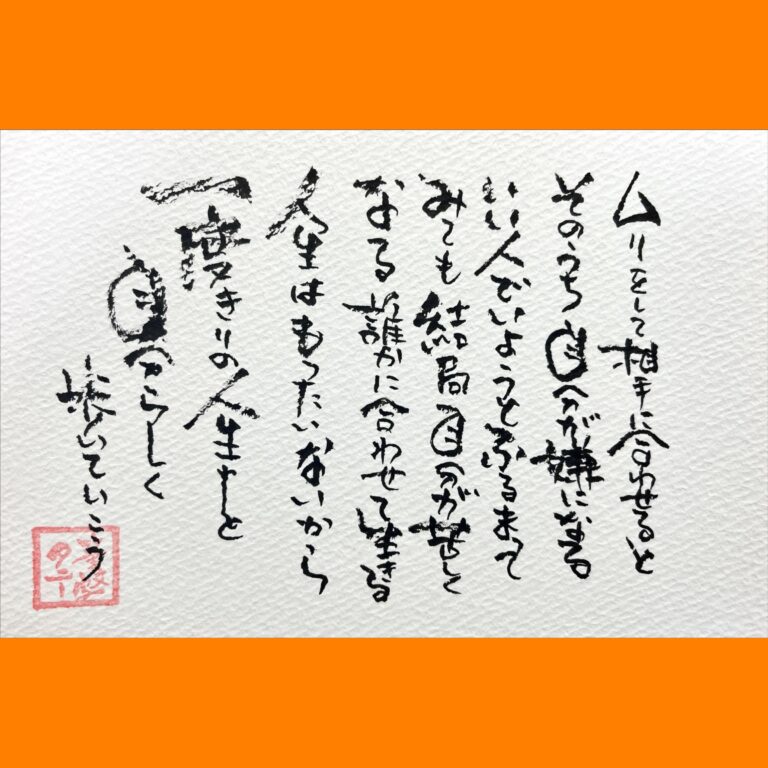 ムリをして相手に合わせると
そのうち自分が嫌になる
いい人でいようとふるまって
みても結局自分が苦しく
なる誰かに合わせて生きる
人生はもったいないから
一度きりの人生を
自分らしく
歩いていこう